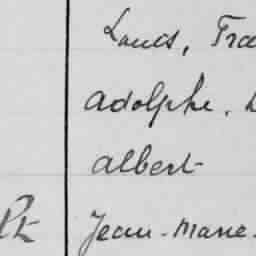 Louis, Fra
adolphe. L
albert
Jean-Marie.